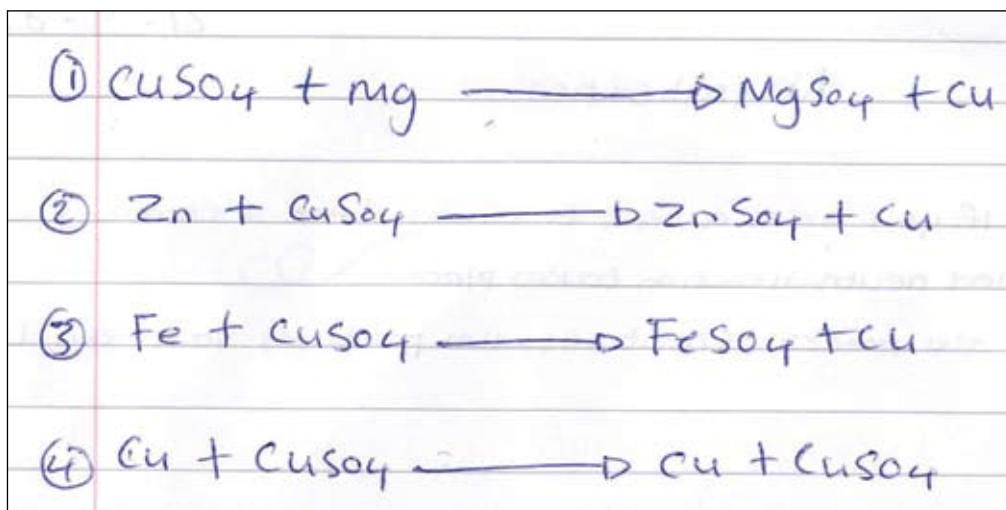 ① CuSO4 + mg → MgSO4 + Cu
② Zn + CuSO4 → ZnSO4 + Cu
③ Fe + CuSO4 → FeSO4 + Cu
④ Cu + CuSO4 → Cu + CuSO4